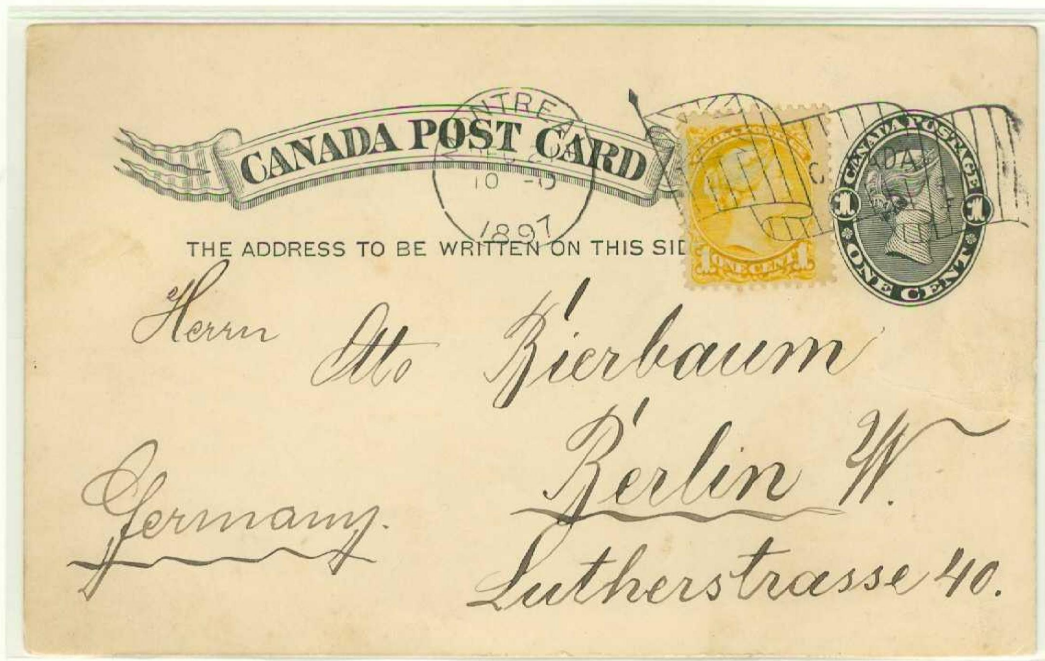 CANADA POST CARD
1897
THE ADDRESS TO BE WRITTEN ON THIS SID
ONE CENT
1 1
CANADA POSTAGE
1 1
ONE CENT
Herrn
Otto Bierbaum
Berlin W.
Germany.
Lutherstrasse 40.